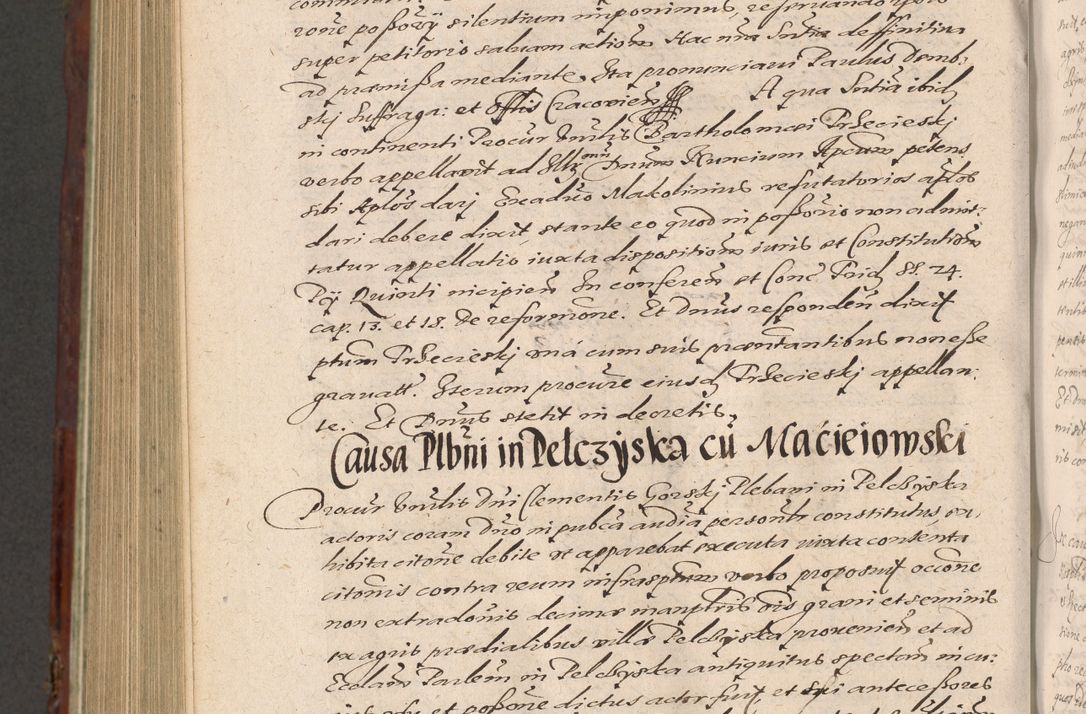 rõne possõrÿ silentium imponimus, reservando ipsis
super petitorio salvam actionẽ Hac nrã Sntĩa deffinitiva
ad præmissa mediante. Ita pronunciavi Paulus Demb:
skj Suffraga: et Offtis Cracovieñ A qua Sntĩa ibid
in continenti Procur Gnrãlis Bartholomæi Trzecieskj
verbo appellavit ad Illr mũ Dnum Nuncium Apcum petens
sibi Aplõs darj Ex adũo Makolinius refutatorios aplõs
dari debere dixit, stante eo quod in possõrio non admit:
tatur appellatio iuxta dispositionẽ iuris et Constitutionẽ
Pÿ Quinti incipień In confereñ et Conc̃ Trid. SS. 24.
cap. 13. et 18. de reformõne. Et Dnus respondeñ dixit
ptum Trzecieskj unà cum suis præsentantibus non esse
gravatũ. Iterum procurẽ eiusd Trzecieskj appellan:
te. Et Dnus stetit in decretis.
Causa Plbñi in Pelczÿska cũ Maćieiowski
Procur Gnrãlis Dñi Clementis Gorskj Plebani in Pelczÿska
actoris coram Dnõ in pubca audĩa personlr constitutus, ex:
hibita citõne debite ut apparebat executa iuxta contenta
citõnis contra reum infrasptum verbo proposuit occõne
non extradõnis decimæ manptris oĩs grani et seminis
ex agris prædialibus villæ Pelczÿska provenieñ et ad
Ecclam Parlem in Pelczÿska antiquitus spectañ in cu:
possõne dictus actor fuit, et sui antecessores